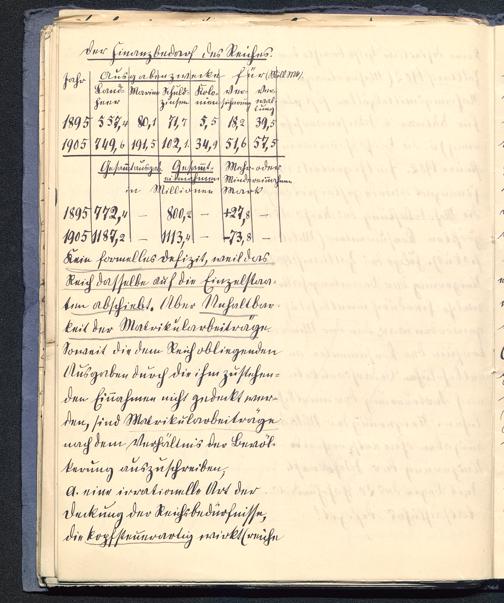 Der Finanzbedarf des Reiches.
Jahr Ausgabenzwecke für (Mill M.)
Landheer Marine Schuldzinsen Kolonien Versicherung Verwaltung
1895 557,4 80,1 71,7 5,5 18,2 39,5
1905 749,6 191,5 102,1 34,9 51,6 57,5
Gesamtausgab. Gesamteinnahmen Mehr- oder Mindereinnahmen
in Millionen Mark
1895 772,4 – 800,2 – +27,8 –
1905 1187,2 – 1113,4 – –73,8 –
Kein formelles Defizit, weil das
Reich dasselbe auf die Einzelstaa-
ten abschiebt. Aber Unhaltbar-
keit der Matrikularbeiträge.
Soweit die dem Reich obliegenden
Ausgaben durch die ihm zustehen-
den Einnahmen nicht gedeckt wer-
den, sind Matrikularbeiträge
nach dem Verhältnis der Bevöl-
kerung auszuschreiben,
a. eine irrationelle Art der
Deckung der Reichsbedürfnisse,
die kopfsteuerartig wirkt (reiche